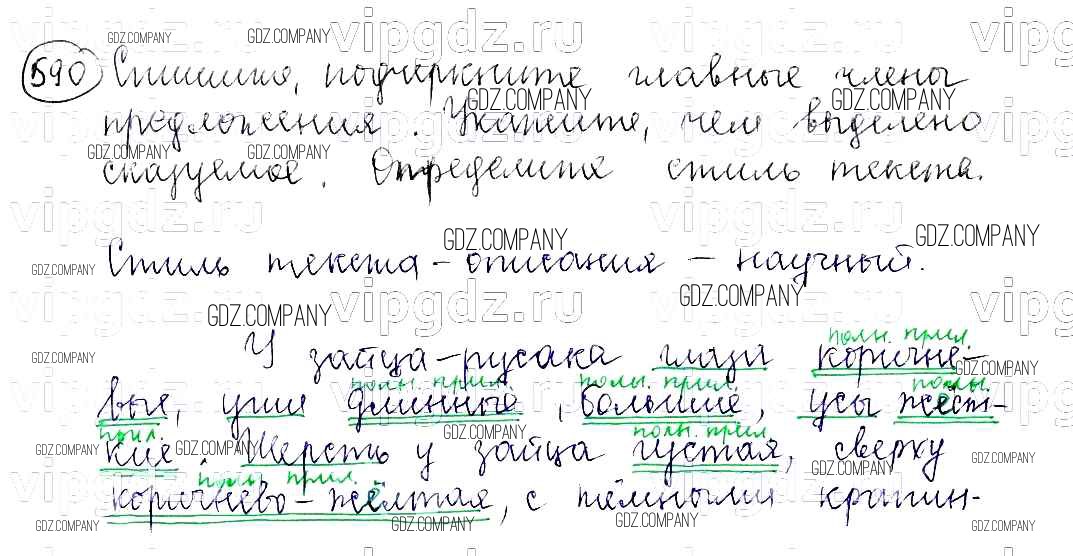 590 Спишите, подчеркните главные члены
предложения. Укажите, чем выделено
сказуемое. Определите стиль текста.
Стиль текста-описания - научный.
полн. прил.
У зайца-русака глаза коричне-
полн. прил. полн. прил. полн.
вые, уши длинные, большие, усы жёст-
прил. полн. прил.
кие. Шерсть у зайца густая, сверху
полн. прил.
коричнево-жёлтая, с тёмными крапин-
vipgdz.ru
GDZ.COMPANY